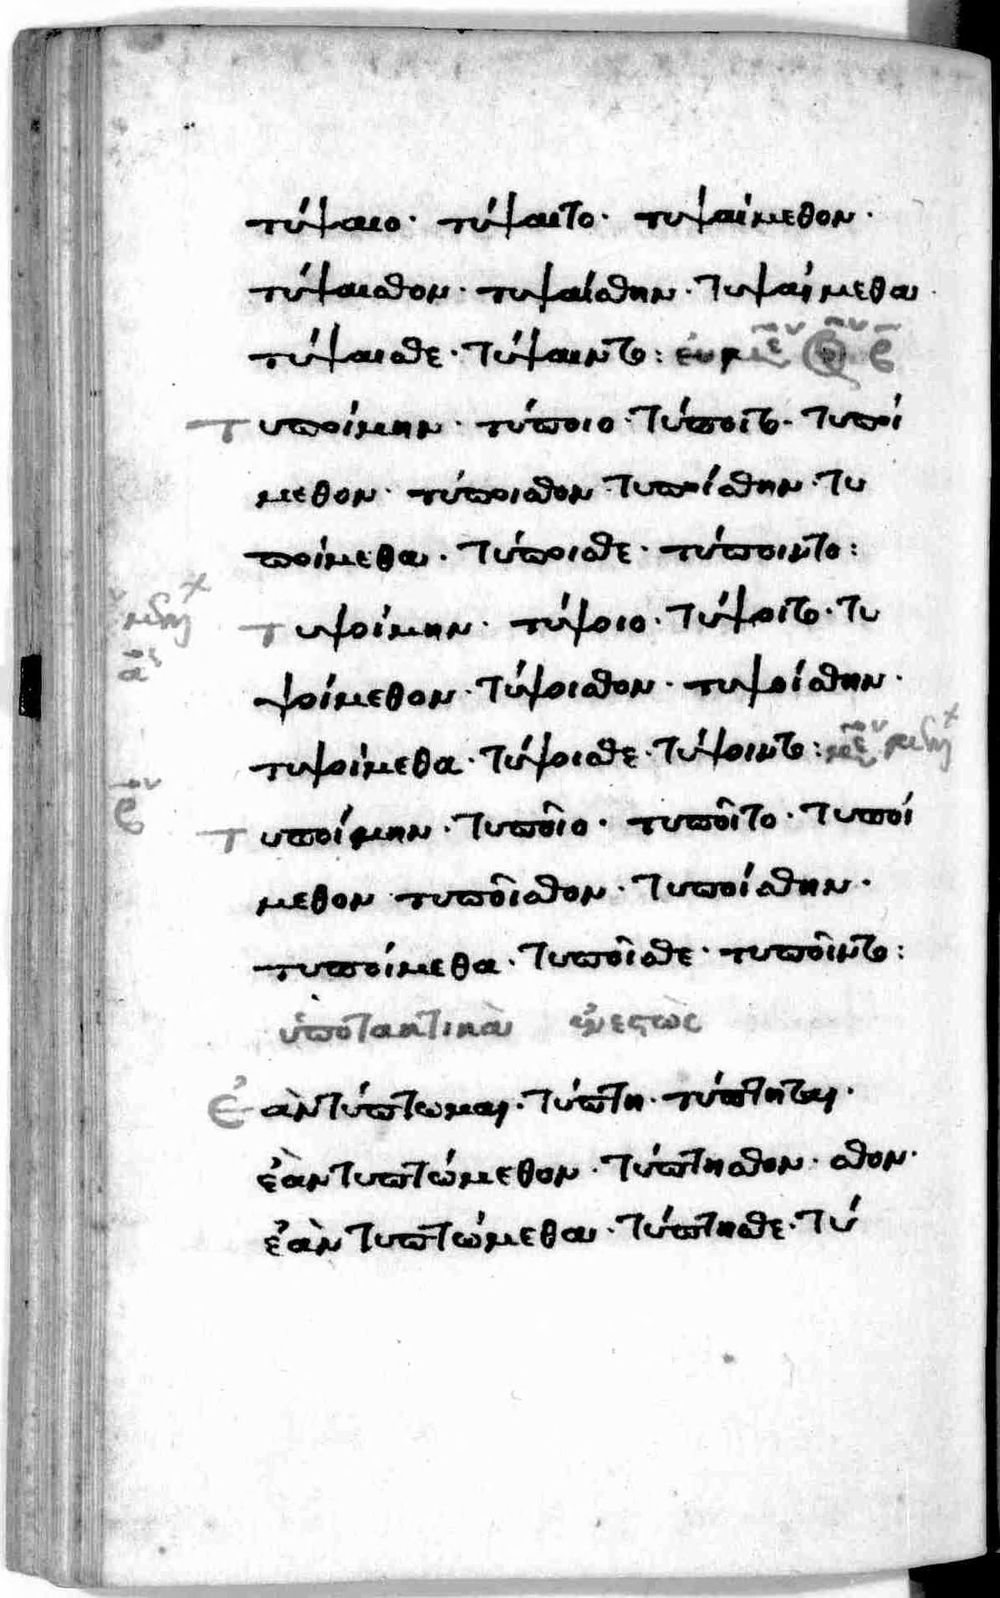 τύψαιο· τύψαιτο· τυψαίμεθον·
τύψαισθον· τυψαίσθην· τυψαίμεθα·
τύψαισθε· τύψαιντο:
Τυποίμην· τύποιο· τύποιτο· τυποί
μεθον· τύποισθον τυποίσθην· τυ
ποίμεθα· τύποισθε· τύποιντο:
Τυψοίμην· τύψοιο· τύψοιτο· τυ
ψοίμεθον· τύψοισθον· τυψοίσθην·
τυψοίμεθα· τύψοισθε· τύψοιντο:
Τυποίμην· τυποῖο· τυποῖτο· τυποί
μεθον τυποῖσθον· τυποίσθην·
τυποίμεθα· τυποῖσθε· τυποῖντο:
ὑποτακτικὰ ἐνεστὼς
Ἐὰν τύπτωμαι· τύπτη· τύπτηται·
ἐὰν τυπτώμεθον· τύπτησθον· σθον·
ἐὰν τυπτώμεθα· τύπτησθε· τύ